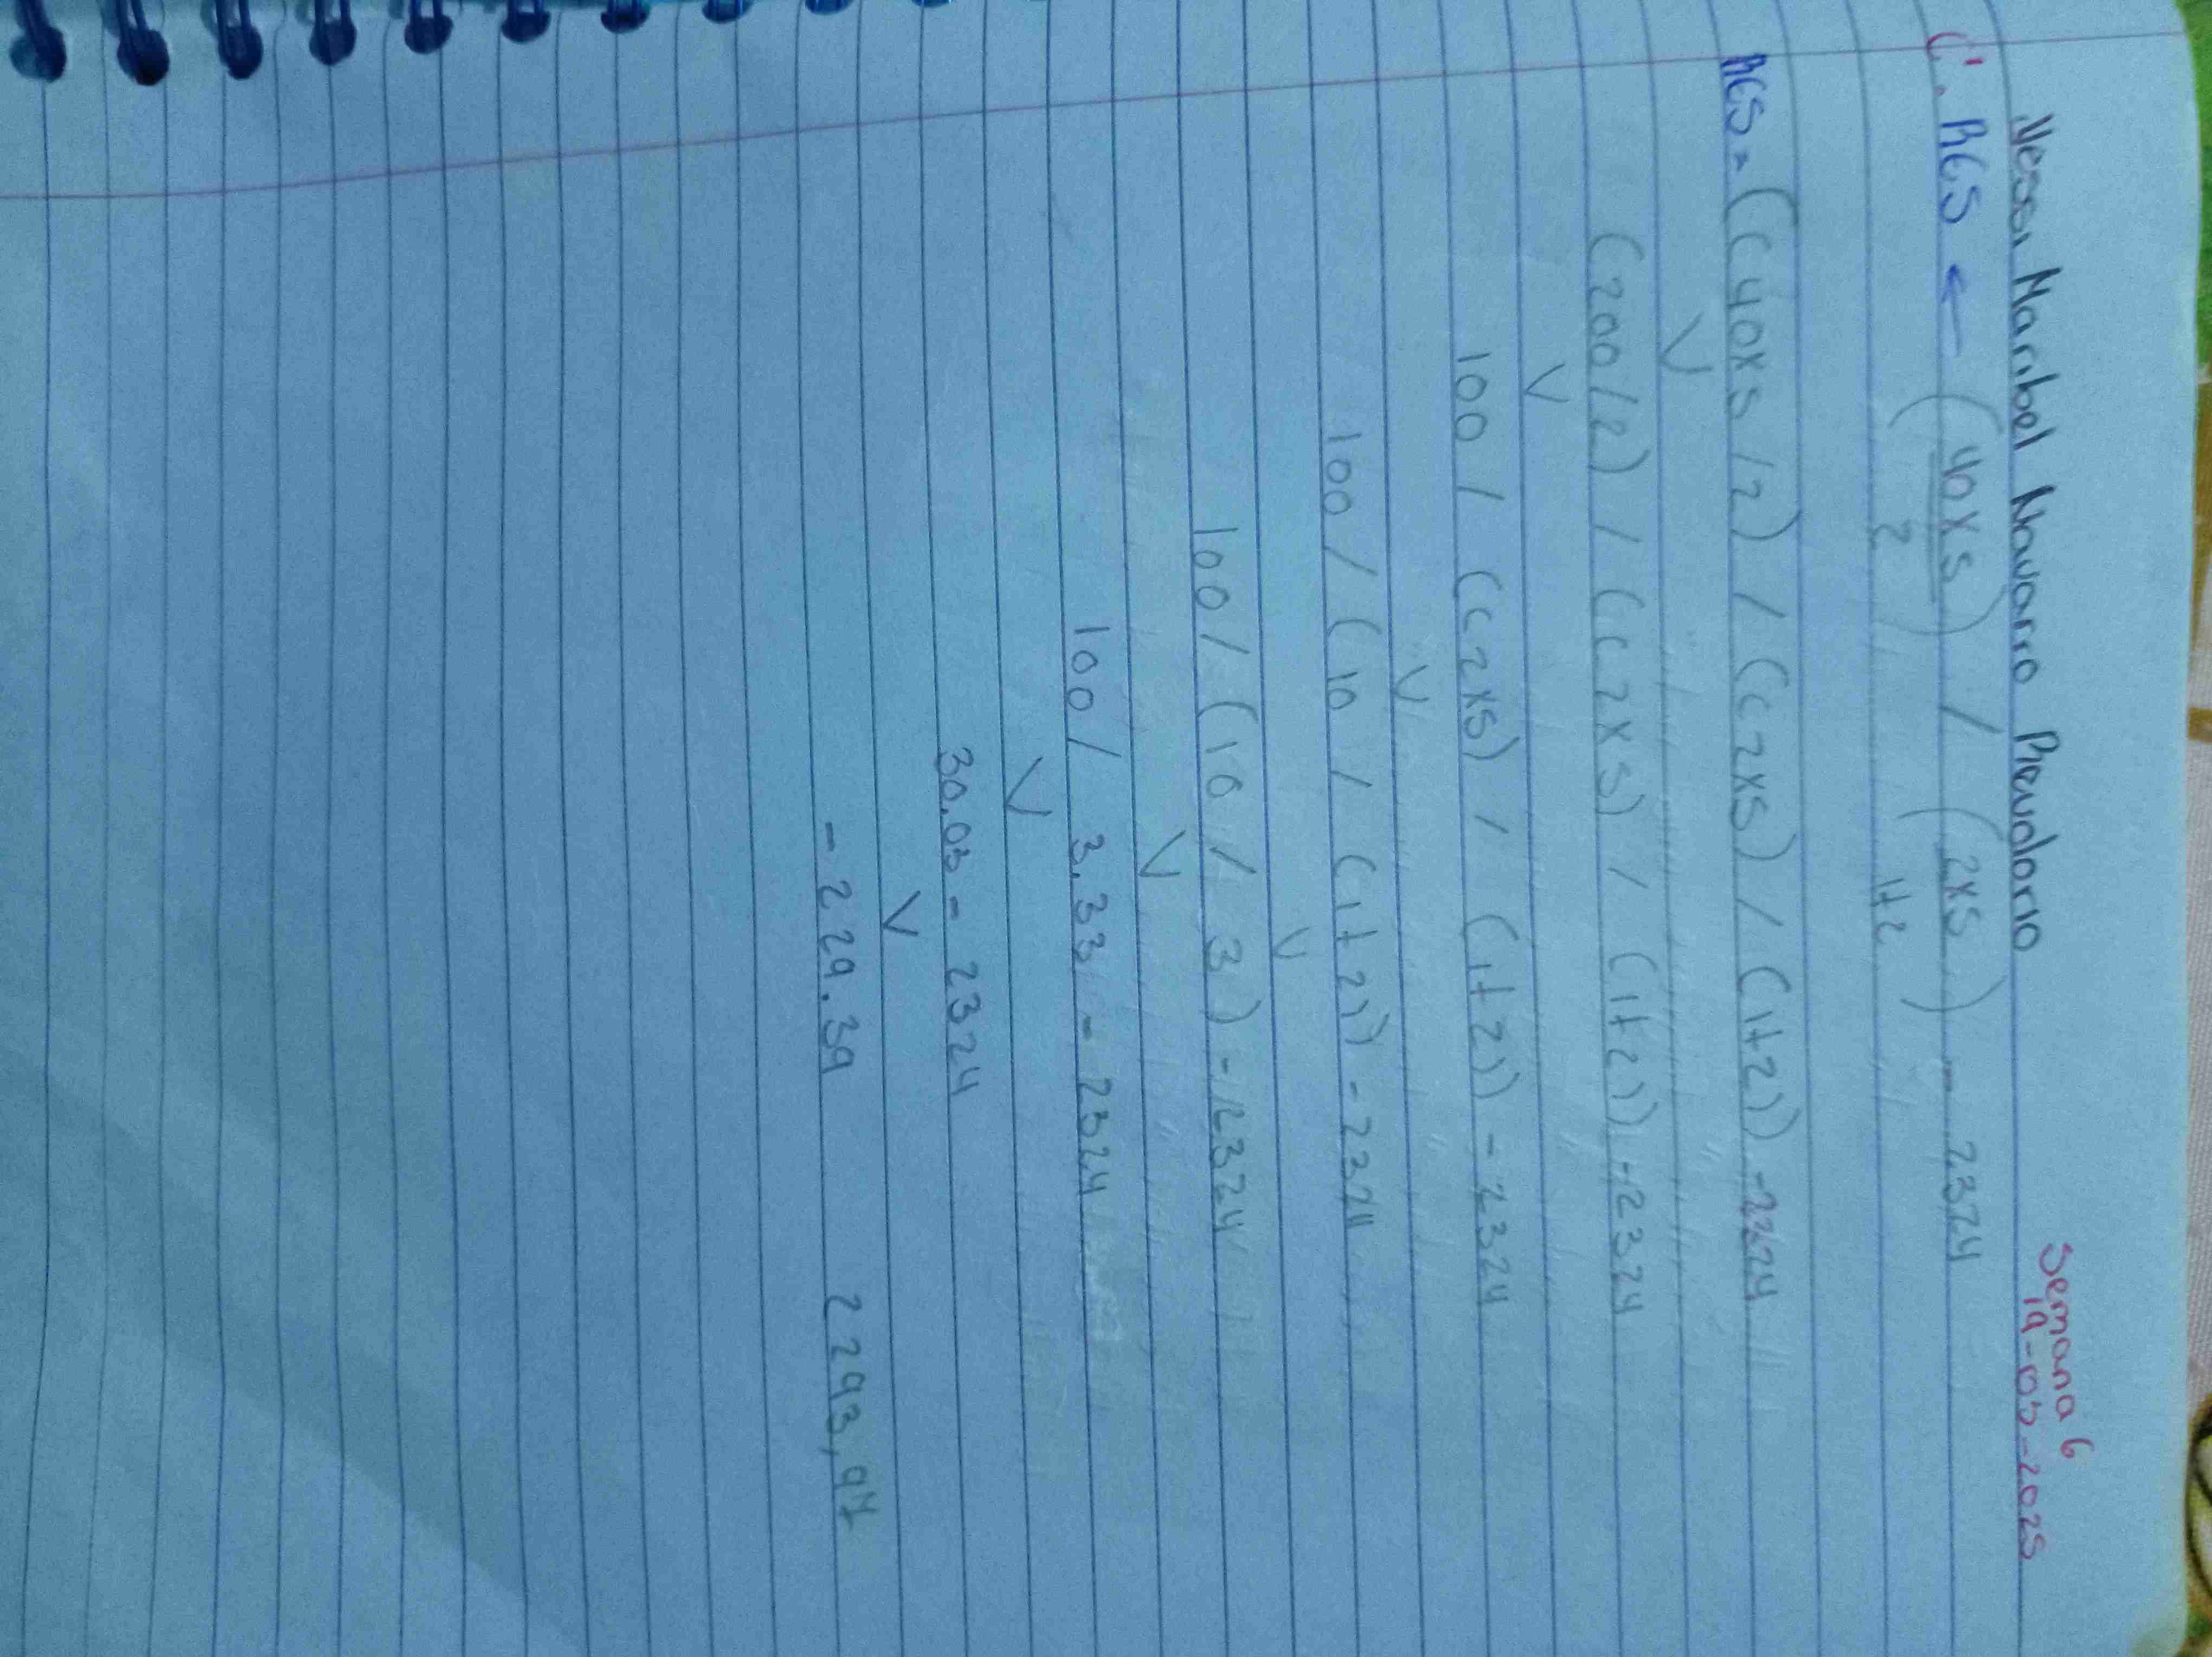 Yessi Maribel Navarro Preudorio
Semana 6
19-05-2025
C. RES ← (40x5) / (2x5) - 2324
2 1+2
RES = ((40x5/2) / ((2x5) / (1+2)) - 2324
(200/2) / ((2x5) / (1+2)) - 2324
100 / ((2x5) / (1+2)) - 2324
100 / (10 / (1+2)) - 2324
100 / (10 / 3) - 2324
100 / 3.33 - 2324
30.03 - 2324
- 229.39 2293,97